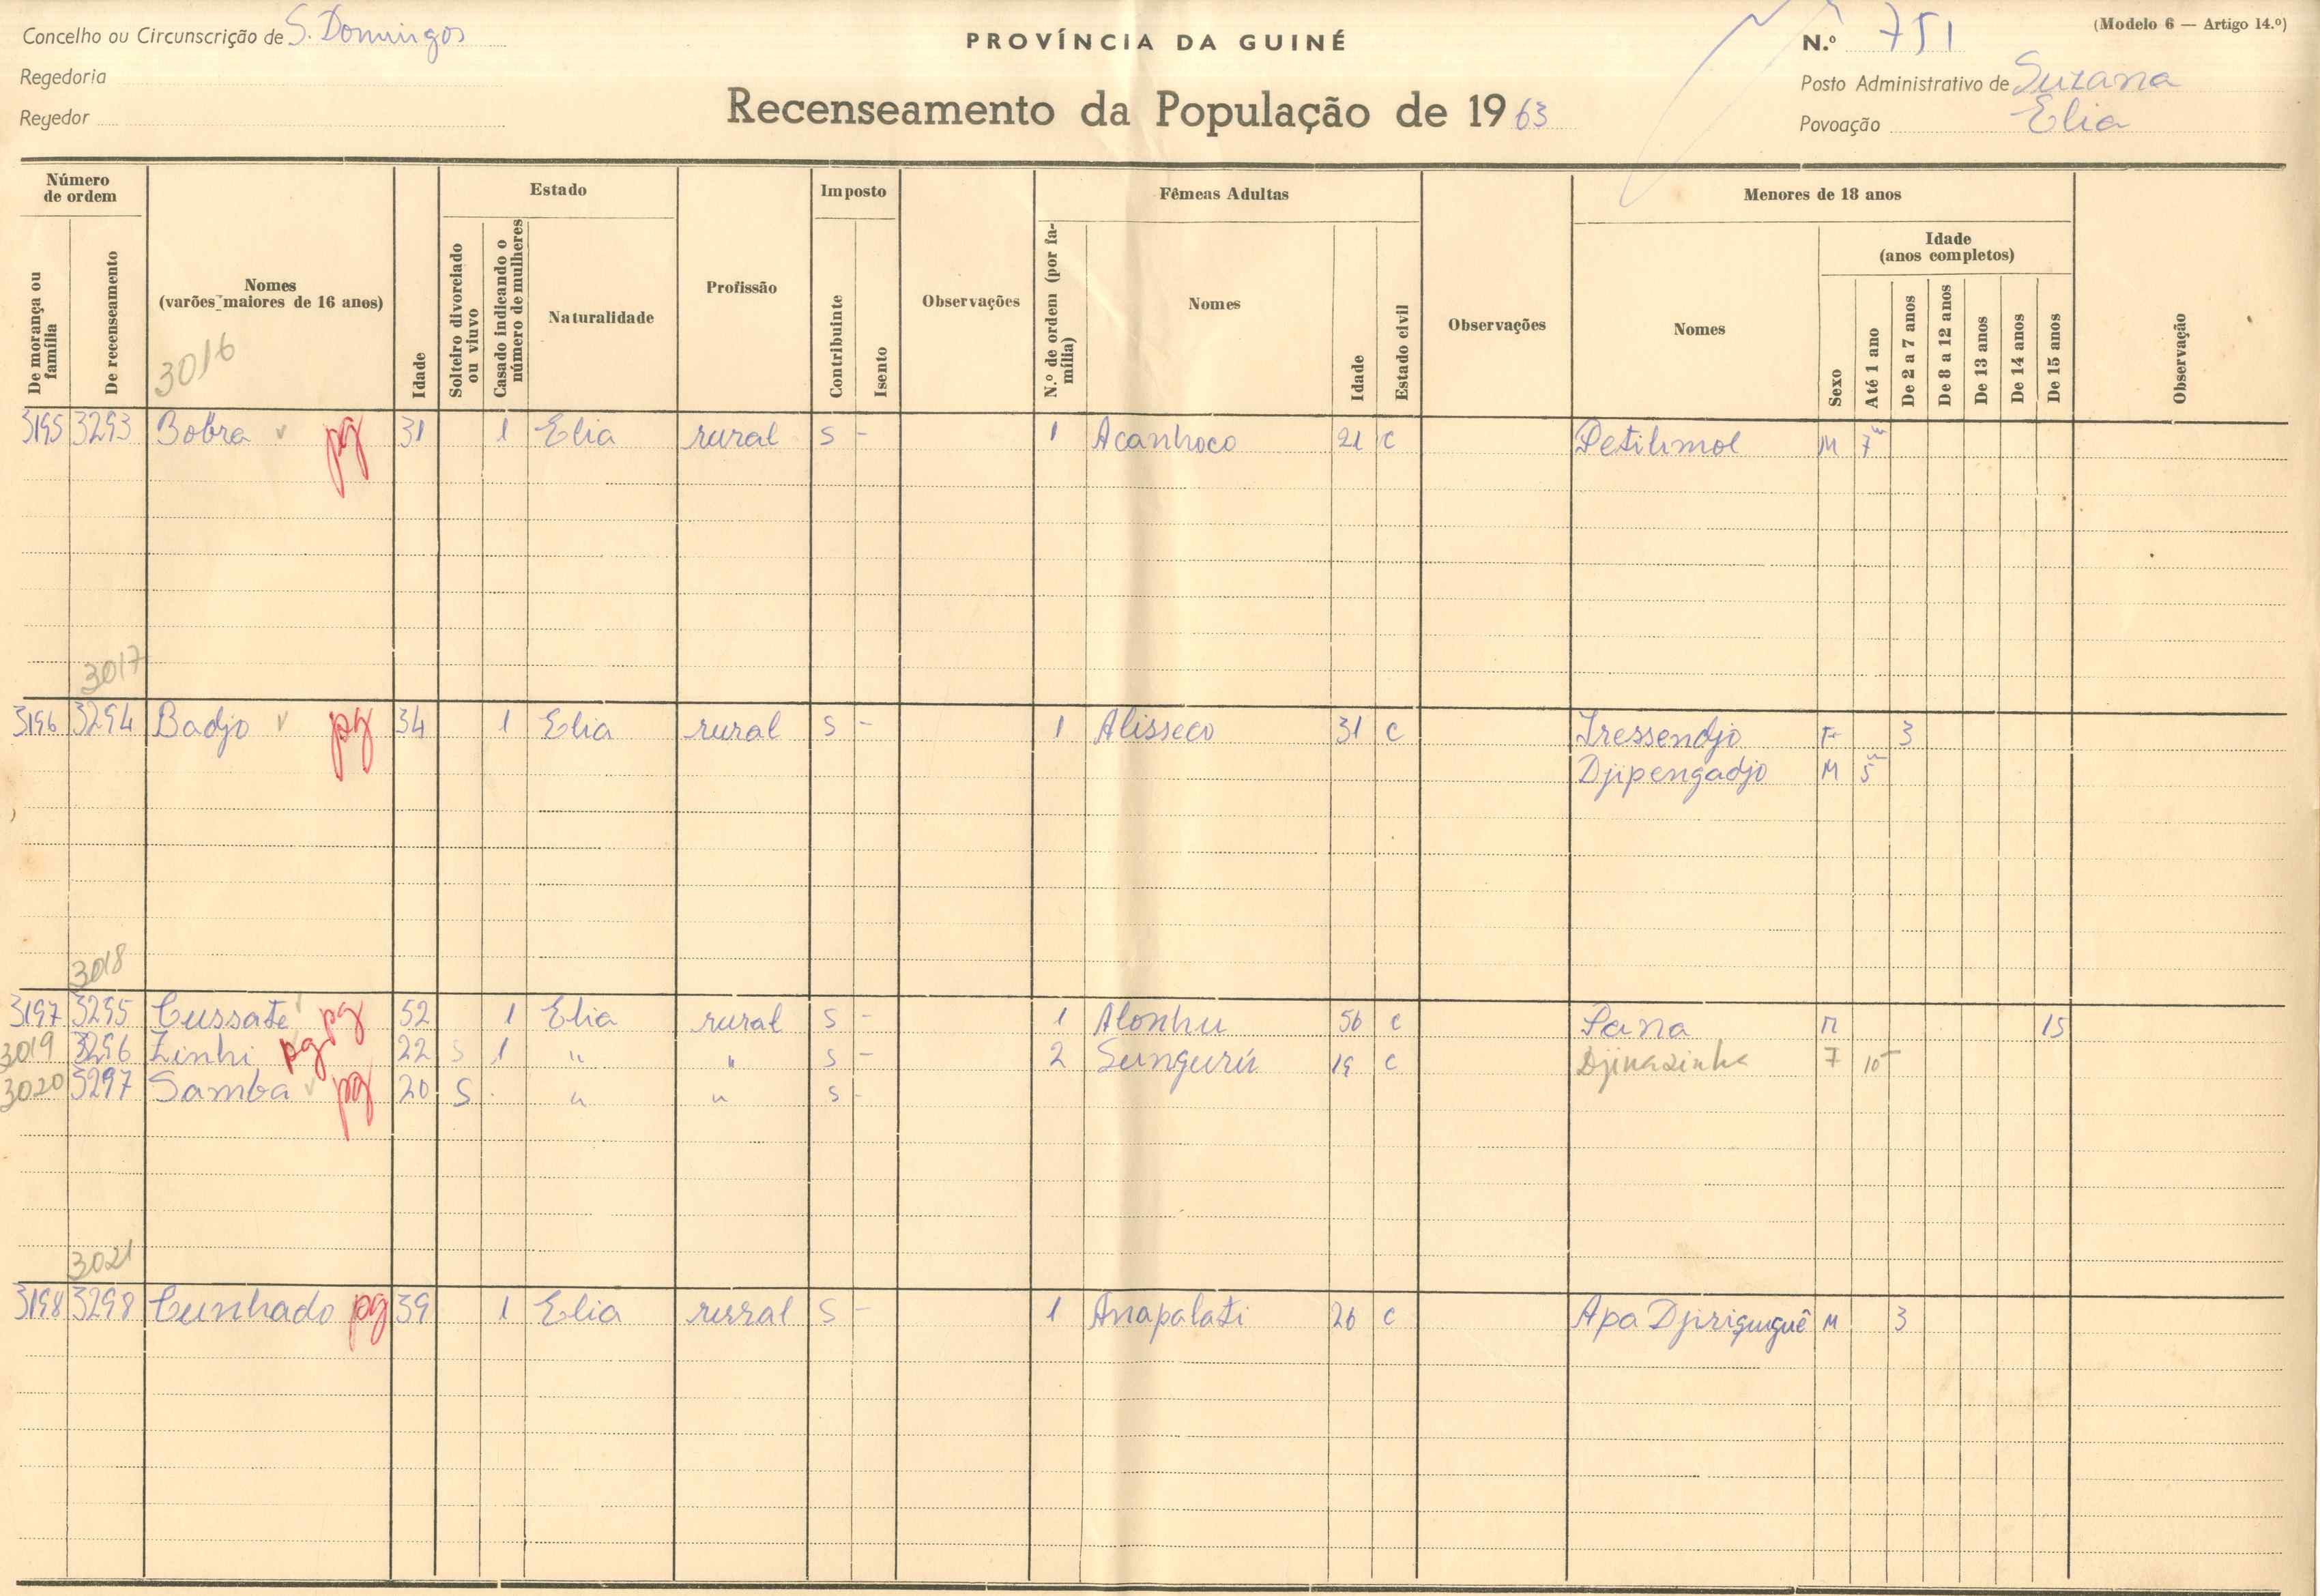 Concelho ou Circunscrição de S. Domingos
PROVÍNCIA DA GUINÉ
N.º 751
(Modelo 6 — Artigo 14.º)
Regedoria
Posto Administrativo de Suzana
Regedor
Recenseamento da População de 1963
Povoação Elia
Número de ordem
Estado
Imposto
Fêmeas Adultas
Menores de 18 anos
De morança ou família
De recenseamento
Nomes (varões maiores de 16 anos)
Idade
Solteiro divorciado ou viuvo
Casado indicando o número de mulheres
Naturalidade
Profissão
Contribuinte
Isento
Observações
N.º de ordem (por família)
Nomes
Idade
Estado civil
Observações
Nomes
Sexo
Idade (anos completos)
Até 1 ano
De 2 a 7 anos
De 8 a 12 anos
De 13 anos
De 14 anos
De 15 anos
Observação
3016
3195 3293 Bobra pg 31 1 Elia rural S - 1 Acanhoco 21 C Petilimol M 7 m
3017
3196 3294 Badjo pg 34 1 Elia rural S - 1 Alisseco 31 C Iressendjo F 3
Djipengadjo M 5 m
3018
3197 3295 Cussate pg 52 1 Elia rural S - 1 Alonhu 56 C Pana M 15
3019 3296 Zinhi pg 22 S 1 " " S - 2 Sungurú 19 C Djinasinha F 10
3020 3297 Samba pg 20 S " " S -
3021
3198 3298 Cunhado pg 39 1 Elia rural S - 1 Anapalati 26 C Apa Djiriguiguê M 3